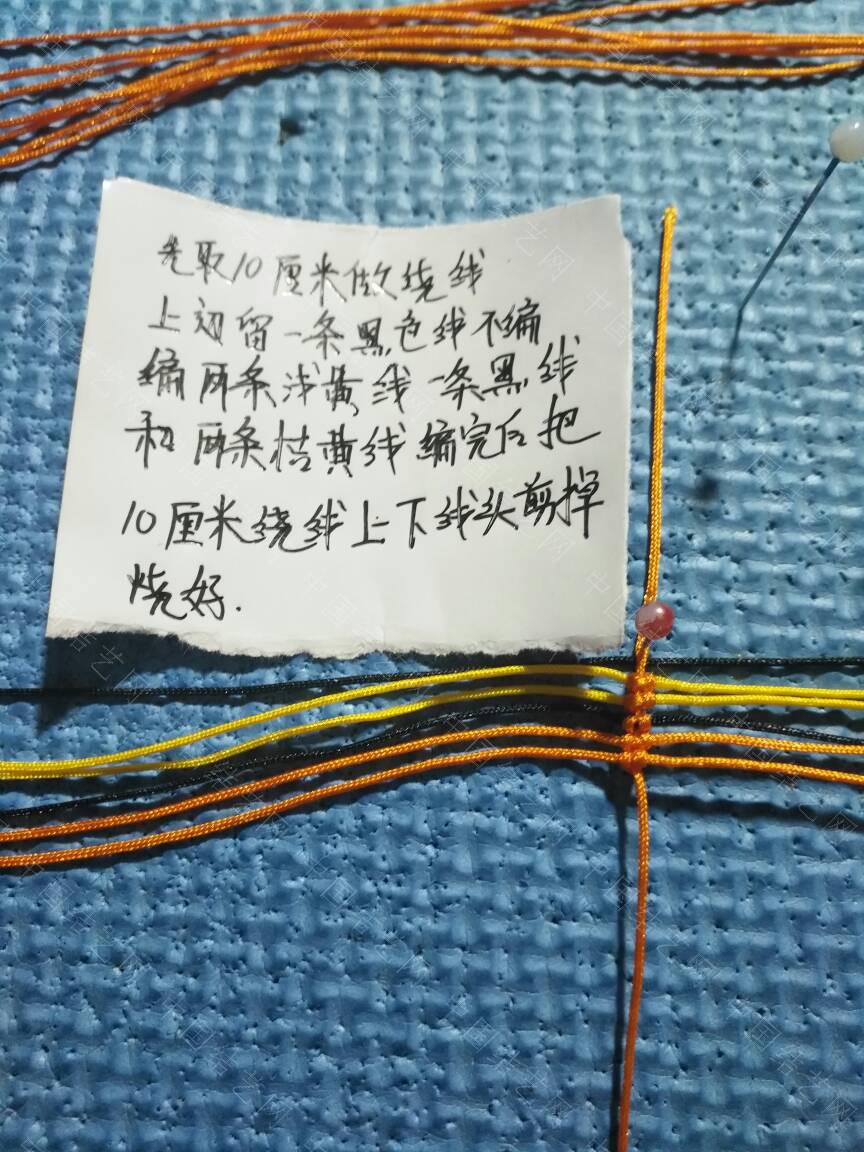 先取10厘米做绕线
上边留一条黑色线不编
编两条浅黄线一条黑线
和两条桔黄线编完后把
10厘米绕线上下线头剪掉
烧好.
中国结艺网